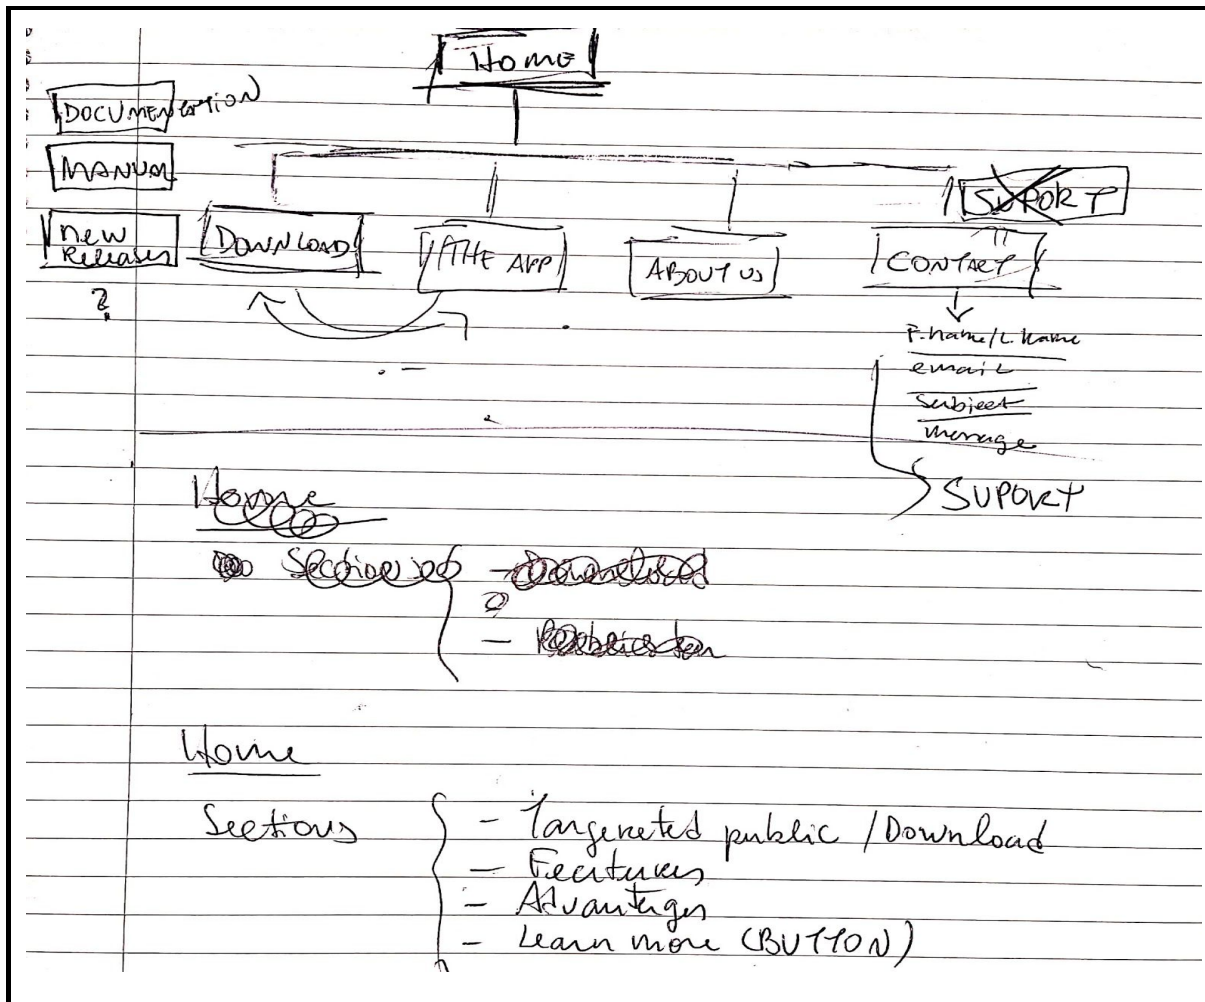 Home
DOCUMENtATiON
MANUAL
SUPORT
new
Releases
DOWNLOAD
THE APP
ABOUT US
CONTACT
?
F.name/L.name
email
Subject
message
Home
SUPORT
Home
Sections
- Targeted public / Download
- Features
- Advantages
- Learn more (BUTTON)